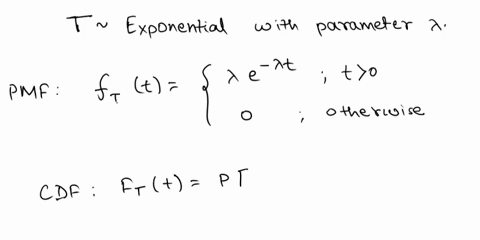 T ~ Exponential with parameter λ.
PMF: f_T (t) = { λ e^{-λt} ; t>0
0 ; otherwise
CDF: F_T (t) = P[